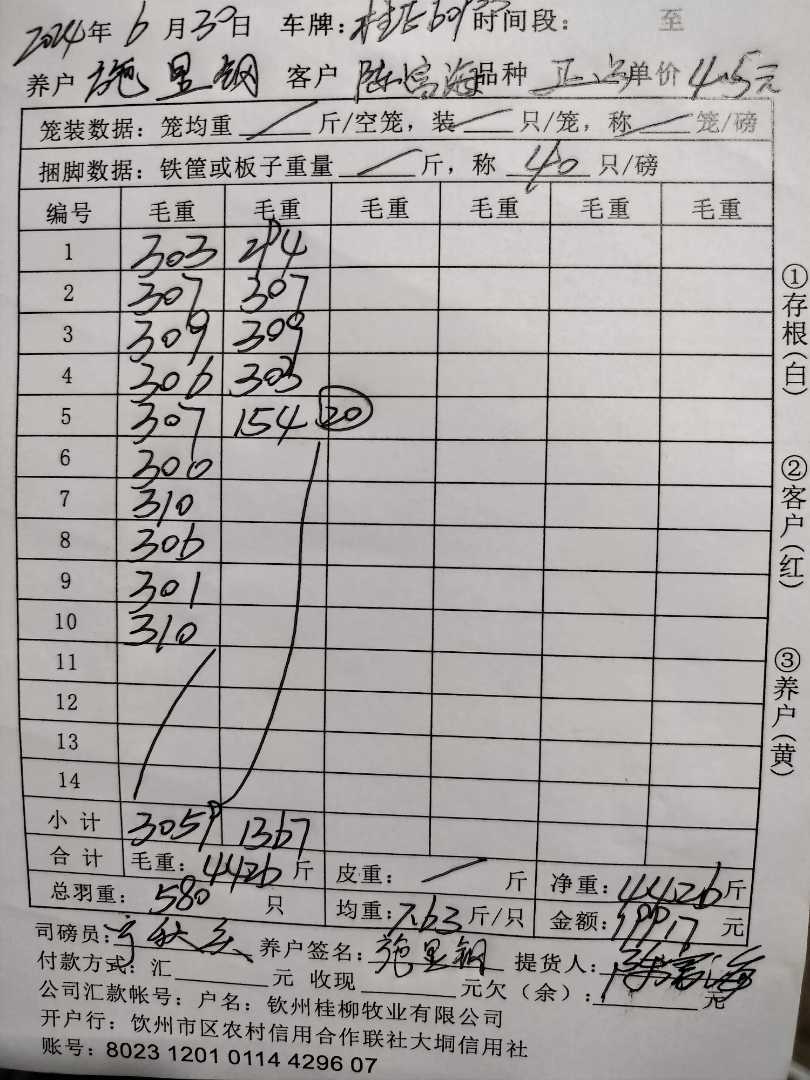 2024年6月30日 车牌： 时间段： 至
养户 施里钢 客户 陆富海 品种 单价 4.5元
笼装数据：笼均重 斤/空笼，装 只/笼，称 笼/磅
捆脚数据：铁筐或板子重量 斤，称 40 只/磅
编号 毛重 毛重 毛重 毛重 毛重 毛重
1 303 294
2 307 307
3 309 309
4 306 303
5 307 154 20
6 300
7 310
8 306
9 301
10 310
11
12
13
14
小计 3059 1367
合计 毛重：4426斤 皮重： 斤 净重：4426斤
总羽重：580只 均重：7.63斤/只 金额：19917元
司磅员： 养户签名：施里钢 提货人：陆富海
付款方式：汇 元 收现 元欠（余）： 元
公司汇款帐号：户名：钦州桂柳牧业有限公司
开户行：饮州市区农村信用合作联社大垌信用社
账号：8023 1201 0114 4296 07
①存根（白）
②客户（红）
③养户（黄）